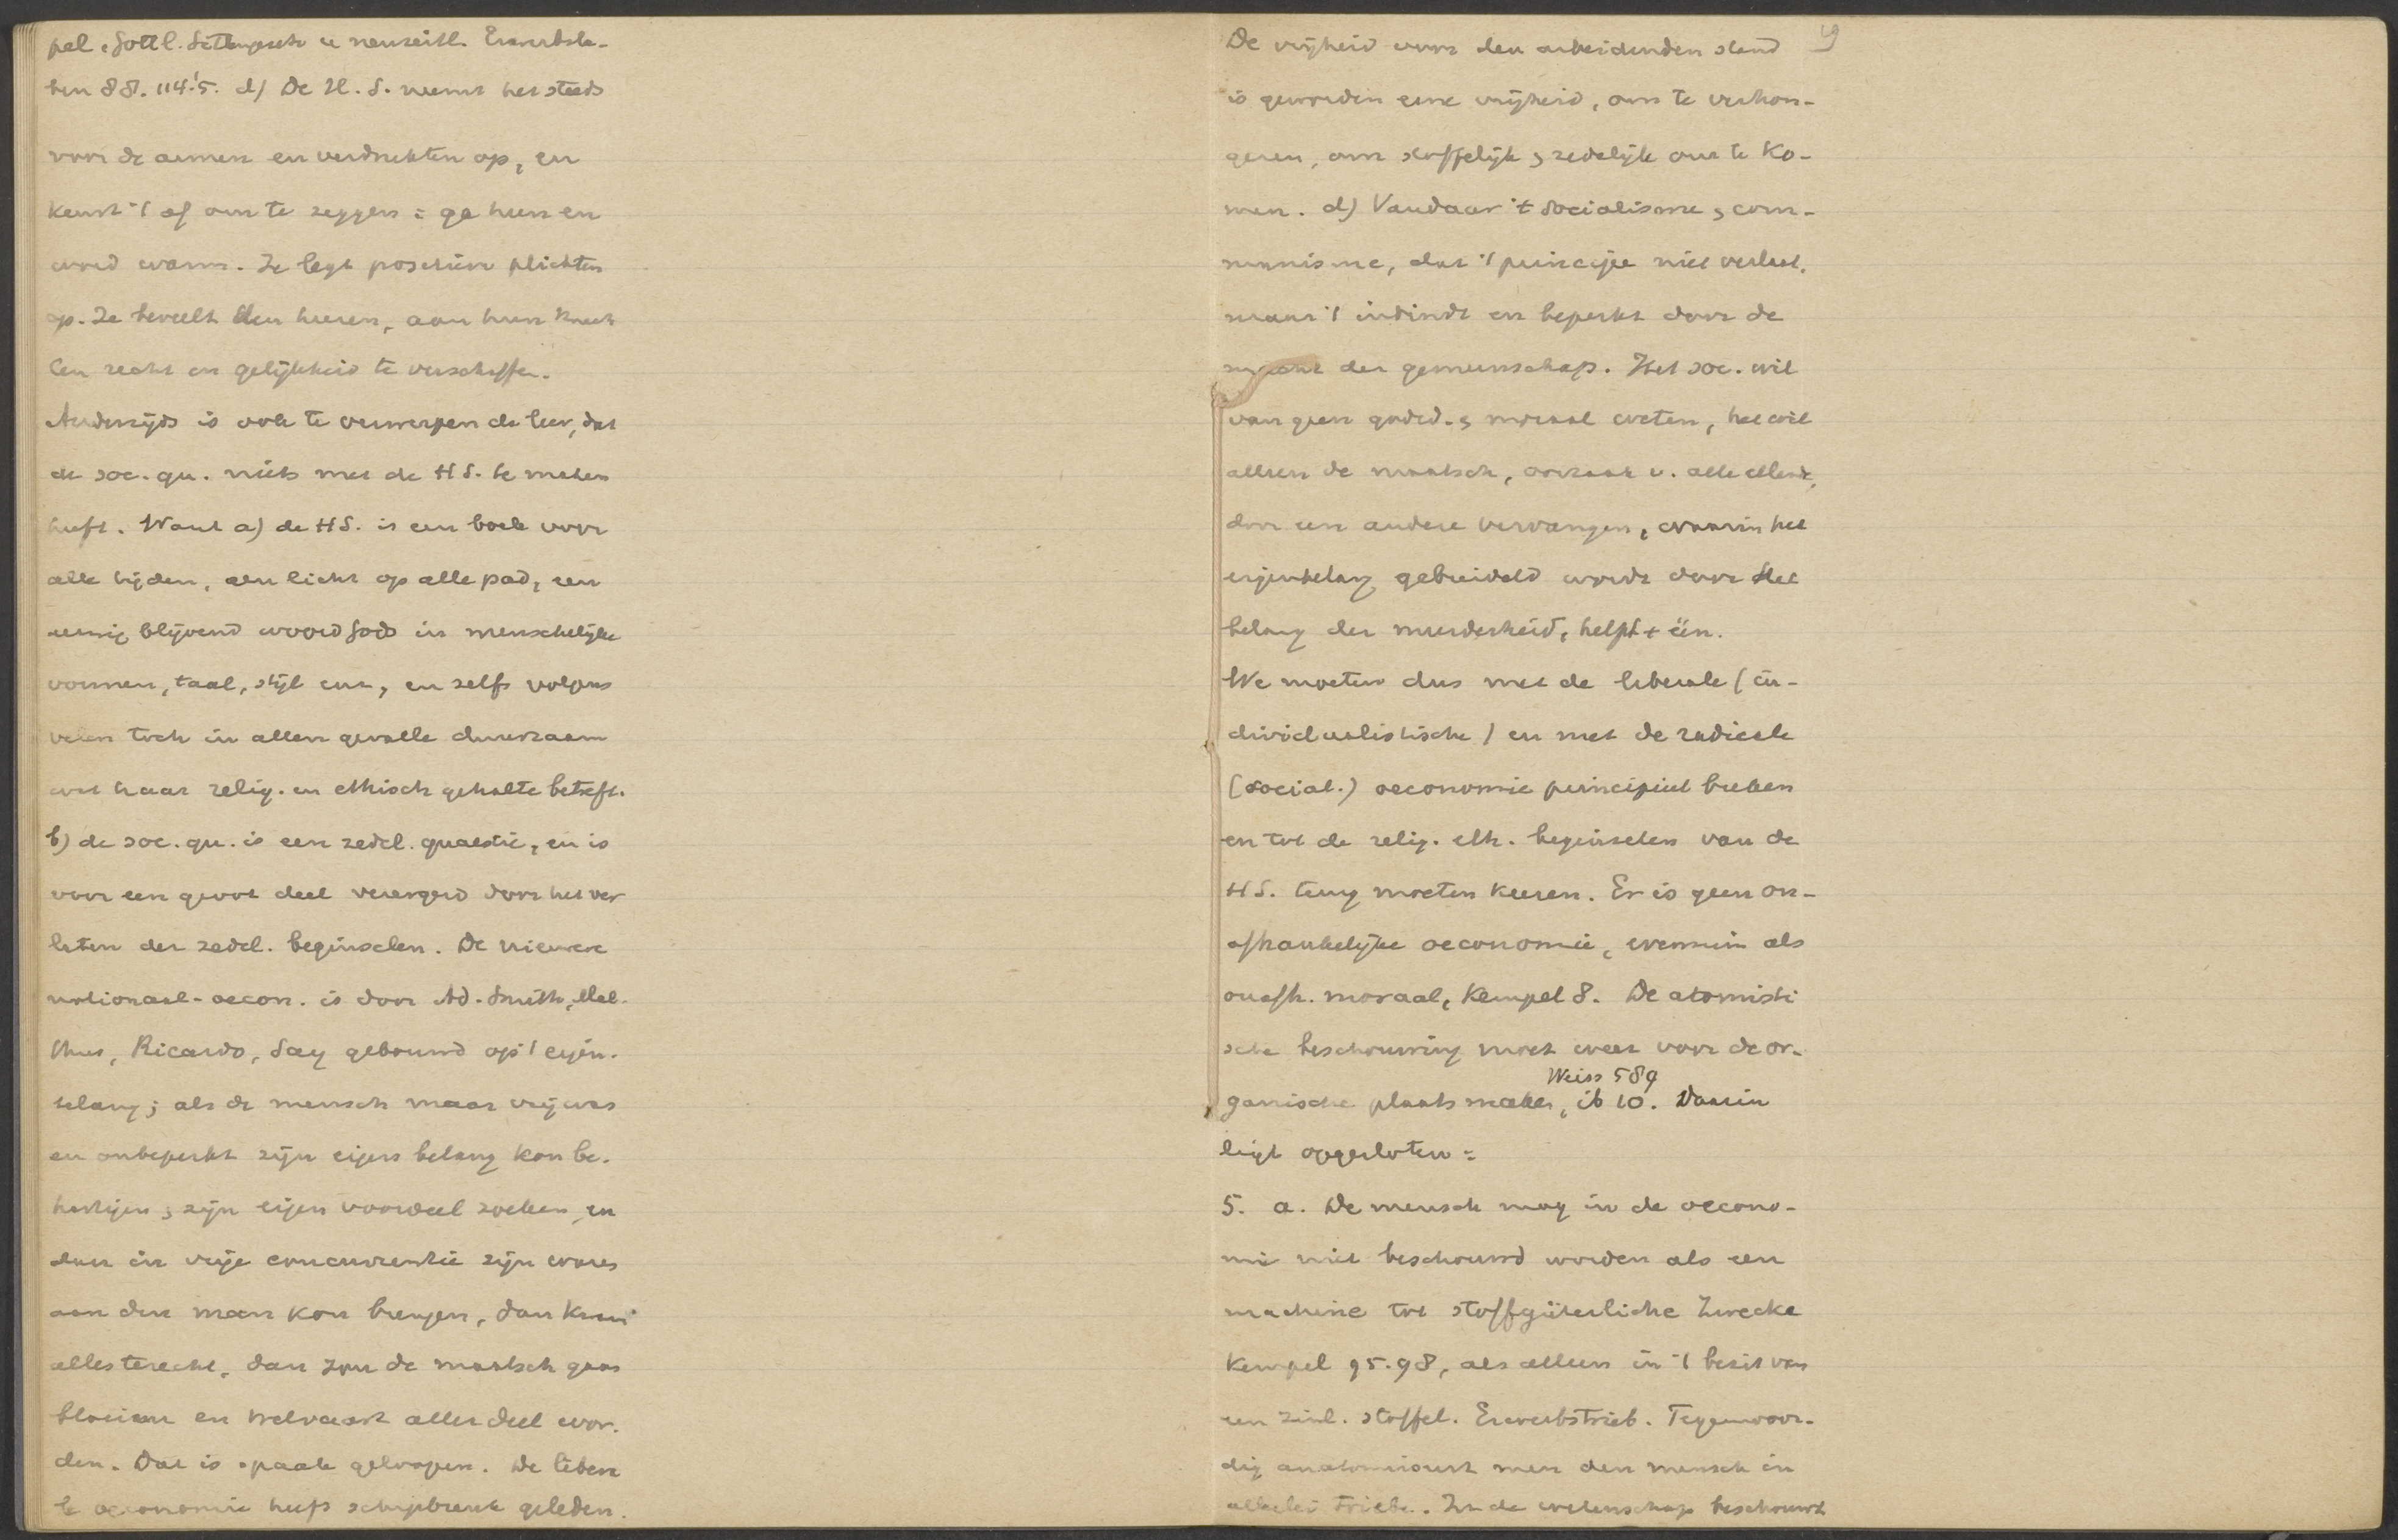 pel, Gottl. Sittengesetz u neuzeitl. Erwerbsle-
ben 88. 114.'5. d) De H. S. neemt het steeds
voor de armen en verdrukten op, en
keurt 't af om te zeggen: ga heen en
word warm. Ze legt positieve plichten
op. Ze beveelt den heeren, aan hun knech
ten recht en gelijkheid te verschaffen.
Anderzijds is ook te verwerpen de leer, dat
de soc. qu. niets met de HS. te maken
heeft. Want a) de HS. is een boek voor
alle tijden, een licht op alle pad, een
eeuwig blijvend woord Gods in menschelijke
vormen, taal, stijl enz, en zelfs volgens
velen toch in allen gevalle duurzaam
wat haar relig. en ethisch gehalte betreft.
b) de soc. qu. is een zedel. quaestie, en is
voor een groot deel verergerd door het ver
laten der zedel. beginselen. De nieuwere
nationaal-oecon. is door Ad. Smith, Mal-
thus, Ricardo, Say gebouwd op 't eigen-
belang; als de mensch maar vrij was
en onbeperkt zijn eigen belang kon be-
hartigen, zijn eigen voordeel zoeken, en
dan in vrije concurrentie zijn waren
aan den man kon brengen, dan kwam
alles terecht, dan zou de maatsch gaan
bloeien en welvaart aller deel wor-
den. Dat is spaak geloopen. De libera
le oeconomie heeft schipbreuk geleden.
De vrijheid voor den arbeidenden stand 49
is geworden eene vrijheid, om te verhon-
geren, om stoffelijk & zedelijk om te ko-
men. d) Vandaar 't socialisme & com-
munisme, dat 't principe niet verlaat,
maar 't inbindt en beperkt door de
macht der gemeenschap. Het soc. wil
van geen godsd. & moraal weten, het wil
alleen de maatsch, oorzaak v. alle ellende,
door een andere vervangen, waarin het
eigenbelang gebreideld wordt door het
belang der meerderheid, helft + één.
We moeten dus met de liberale (in-
dividualistische) en met de radicale
(social.) oeconomie principieel breken
en tot de relig. eth. beginselen van de
HS. terug moeten keeren. Er is geen on-
afhankelijke oeconomie, evenmin als
onafh. moraal, Kempel 8. De atomisti
sche beschouwing moet weer voor de or-
Weiss 589
ganische plaats maken, ib 10. Daarin
ligt opgesloten:
5. a. De mensch mag in de oecono-
mie niet beschouwd worden als een
machine tot stoffgüterliche Zwecke
Kempel 95.98, als alleen in 't bezit van
een zinl. stoffel. Erwerbstrieb. Tegenwoor-
dig anatomiseert men den mensch in
allerlei Triebe. In de wetenschap beschouwt